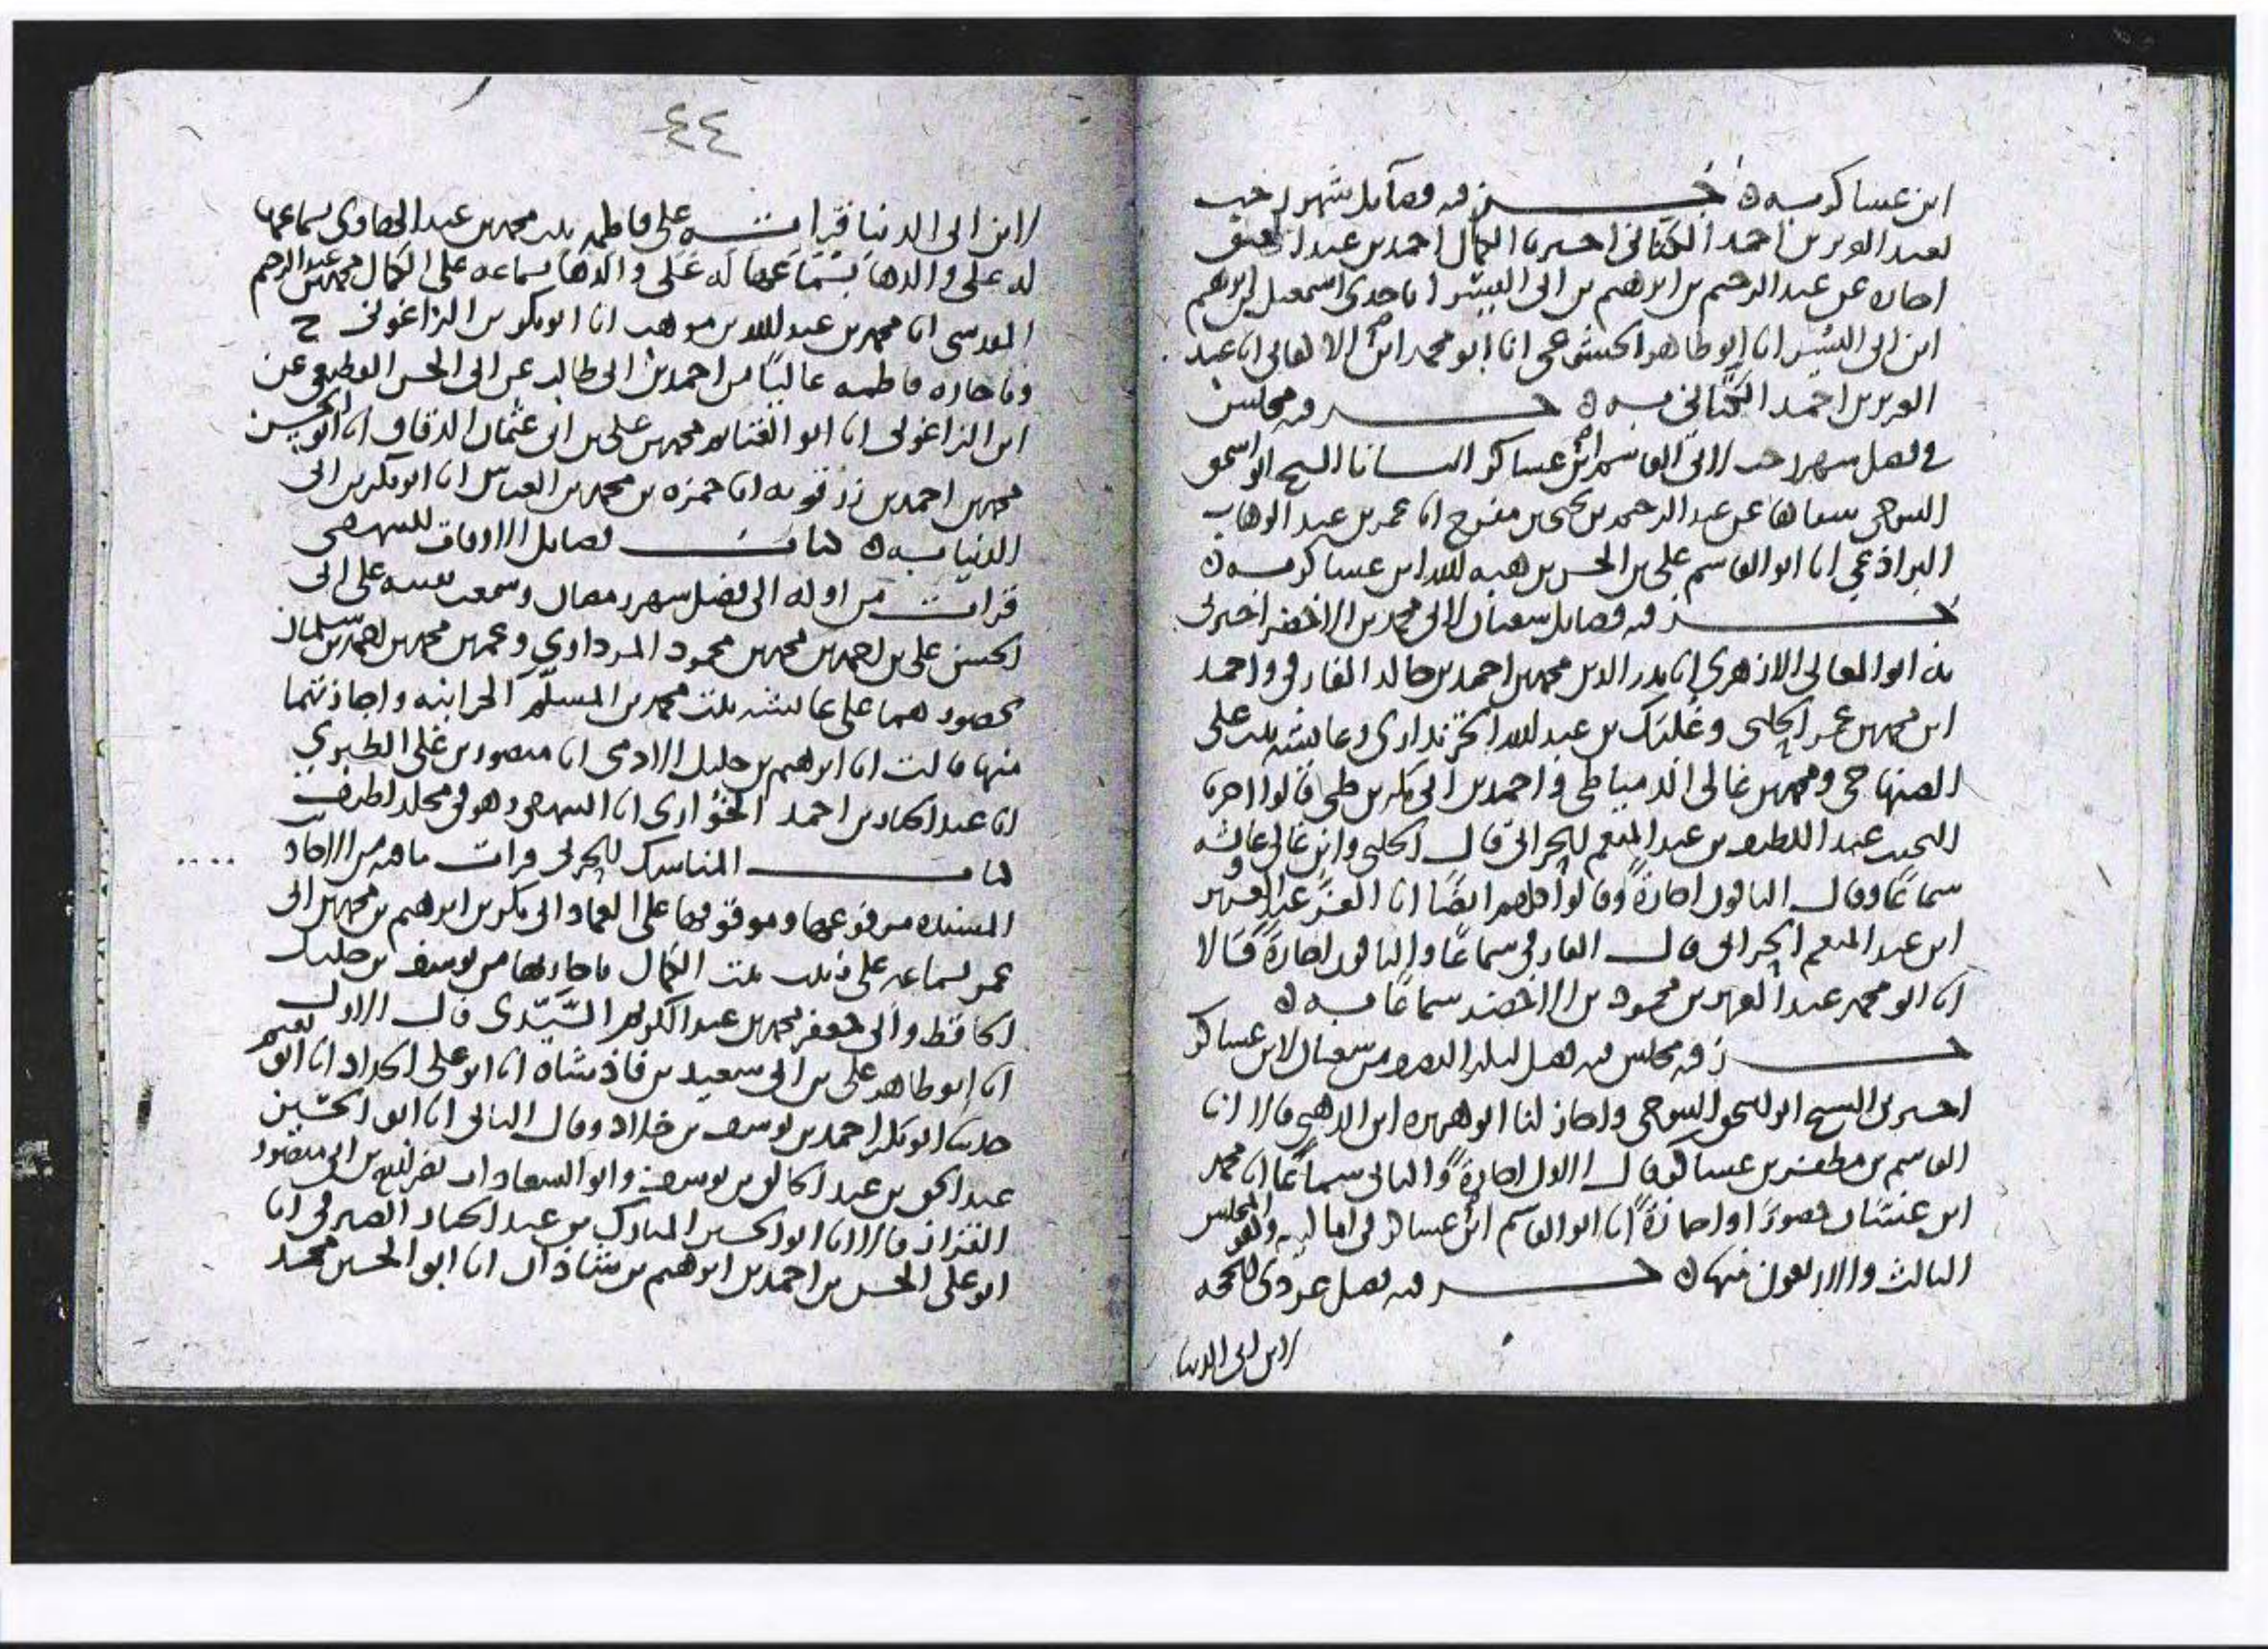 ابن عساكر به ه جزء فيه فضائل شهر رجب
لعبد العزيز بن احمد الكتاني اخبرنا الكمال احمد بن عبد الحق
اجازة عن عبد الرحيم بن ابرهيم بن ابي اليسر انا جدي اسمعيل بن ابرهيم
ابن ابي اليسر انا ابو طاهر الخشوعي انا ابو محمد ابن الاكفاني انا عبد
العزيز بن احمد الكتاني به ه جزء فيه مجلس
في فضل شهر رجب لابي القاسم ابن عساكر انا الشيخ ابو اسحق
التنوخي عن عبد الرحمن بن يحيى بن انا عمر بن عبد الوهاب
البراذعي انا ابو القاسم علي بن الحسن بن هبه الله ابن عساكر به ه
جزء فيه فضايل شعبان لابي محمد بن الاخضر اخبرني
به ابو المعالي الازهري انا بدر الدين محمد بن احمد بن خالد الفارقي واحمد
ابن محمد بن عمر الحلبي وغلبك بن عبد الله الخزنداري وعائشه بنت علي
الصنهاجي ومحمد بن غالي الدمياطي واحمد بن ابي بكر بن طي قالوا اخبرنا
النجيب عبد اللطيف بن عبد المنعم الحراني قال الحلبي وابن غالي وعائشه
سماعًا وقال الباقون اجازةً وقالوا كلهم ايضًا انا العز عبد العزيز
ابن عبد المنعم الحراني قال الفارقي سماعًا والباقون اجازةً قالا
انا ابو محمد عبد العزيز بن محمود بن الاخضر سماعًا به ه
جزء فيه مجلس فيه فضل ليلة النصف من شعبان لابن عساكر
اخبرني الشيخ ابو اسحق التنوخي واجاز لنا ابو هريره ابن الذهبي قالا انا
القاسم بن مظفر بن عساكر قال الاول اجازةً والثاني سماعًا انا محمد
ابن غسان حضورًا او اجازةً انا ابو القاسم ابن عساكر في اماليه وهو المجلس
الثالث والاربعون منها ه جزء فيه فضل عشر ذي الحجه
لابن ابي الدنيا
٤٤
لابن ابي الدنيا قرات على فاطمه بنت محمد بن عبد الهادي بسماعها
له على والدها بسماعه على الكمال محمد بن عبد الرحيم
المقدسي انا محمد بن عبد الله بن موهب انا ابو بكر بن الزاغوني ح
وباجازه فاطمه عاليًا من احمد بن ابي طالب عن ابي الحسن القطيعي عن
ابن الزاغوني انا ابو الغنائم محمد بن علي بن ابي عثمان الدقاق انا ابو الحسن
محمد بن احمد بن رزقويه انا حمزه بن محمد بن العباس انا ابو بكر بن ابي
الدنيا به ه كتاب فضايل الاوقات للبيهقي
قرات من اوله الى فضل شهر رمضان وسمعت بقيته على ابي
الحسن علي بن احمد بن محمد بن محمود المرداوي وعمر بن محمد بن احمد بن سلمان
بحضورهما على عائشه بنت محمد بن المسلّم الحرانيه واجازتهما
منها قالت انا ابرهيم بن خليل الادمي انا منصور بن علي الطبري
انا عبد الجبار بن احمد الخُوَاري انا البيهقي وهو في مجلد لطيف
كتاب المناسك للحربي قرات ما فيه من الاحاديث
المسنده مرفوعها وموقوفها على العماد ابي بكر بن ابرهيم بن محمد بن ابي
عمر بسماعه على زينب بنت الكمال باجازتها من يوسف بن خليل
الحافظ وابي جعفر محمد بن عبد الكريم السَّيّدي قال الاول
انا ابو طاهر علي بن ابي سعيد بن فاذشاه انا ابو علي الحداد انا ابو نعيم
حدثنا ابو بكر احمد بن يوسف بن خلاد وقال الثاني انا ابو الحُسَين
عبد الحق بن عبد الخالق بن يوسف وابو السعادات نصر الله بن ابي منصور
القزاز قالا انا ابو الحسين المبارك بن عبد الجبار الصيرفي انا
ابو علي الحسن بن احمد بن ابرهيم بن شاذان انا ابو الحسين محمد